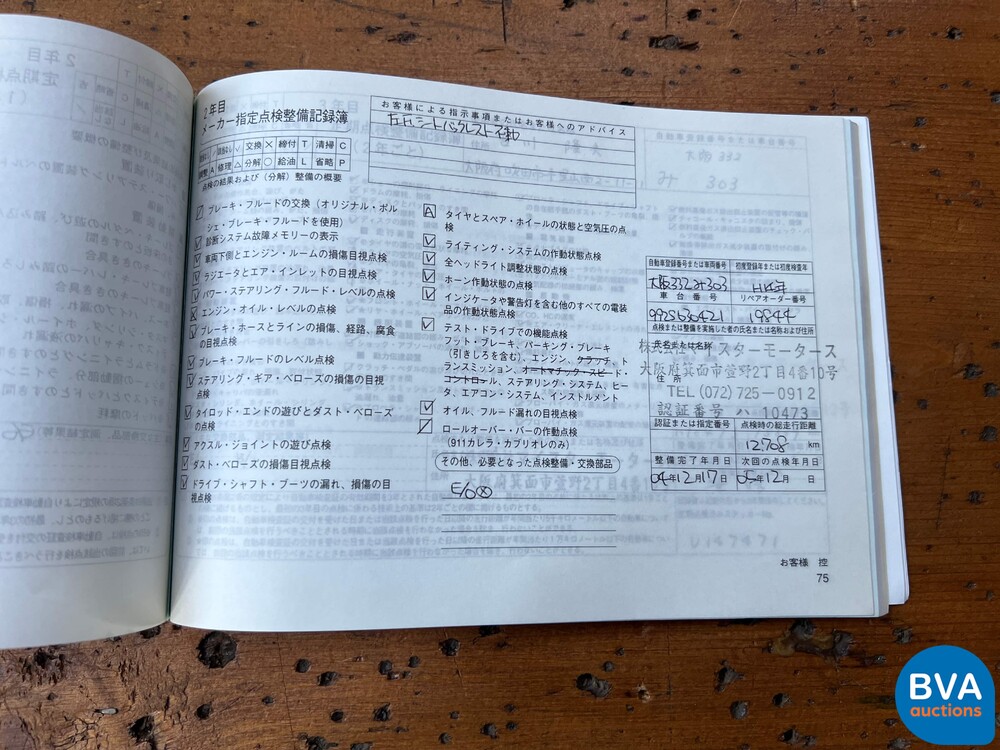 2年目
メーカー指定点検整備記録簿
交換 × 締付 T 清掃 C
調整 A 修理 △ 分解 ○ 給油 L 省略 P
点検の結果および(分解)整備の概要
お客様による指示事項またはお客様へのアドバイス
ブレーキ・フルードの交換(オリジナル・ポル
シェ・ブレーキ・フルードを使用)
診断システム故障メモリーの表示
車両下側とエンジン・ルームの損傷目視点検
ラジエータとエア・インレットの目視点検
パワー・ステアリング・フルード・レベルの点検
エンジン・オイル・レベルの点検
ブレーキ・ホースとラインの損傷、経路、腐食
の目視点検
ブレーキ・フルードのレベル点検
ステアリング・ギア・ベローズの損傷の目視
点検
タイロッド・エンドの遊びとダスト・ベローズ
の点検
アクスル・ジョイントの遊び点検
ダスト・ベローズの損傷目視点検
ドライブ・シャフト・ブーツの漏れ、損傷の目
視点検
A タイヤとスペア・ホイールの状態と空気圧の点
検
ライティング・システムの作動状態点検
全ヘッドライト調整状態の点検
ホーン作動状態の点検
インジケータや警告灯を含む他のすべての電装
品の作動状態点検
テスト・ドライブでの機能点検
フット・ブレーキ、パーキング・ブレーキ
(引きしろを含む)、エンジン、クラッチ、ト
ランスミッション、オートマチック・スピード・
コントロール、ステアリング・システム、ヒー
タ、エアコン・システム、インストルメント
オイル、フルード漏れの目視点検
ロールオーバー・バーの作動点検
(911カレラ・カブリオレのみ)
その他、必要となった点検整備・交換部品
E/O ⊗
自動車登録番号または車両番号 初度登録年または初度検査年
大阪332み303 H14年
車台番号 リペアオーダー番号
992S630421 19844
点検または整備を実施した者の氏名または名称および住所
氏名または名称
スターモータース
大阪府箕面市萱野2丁目4番10号
住所
TEL (072) 725-0912
認証番号 ハ 10473
認証または指定番号 点検時の総走行距離
12,708 km
整備完了年月日 次回の点検年月日
04年12月17日 05年12月 日
お客様 控
75
BVA
auctions